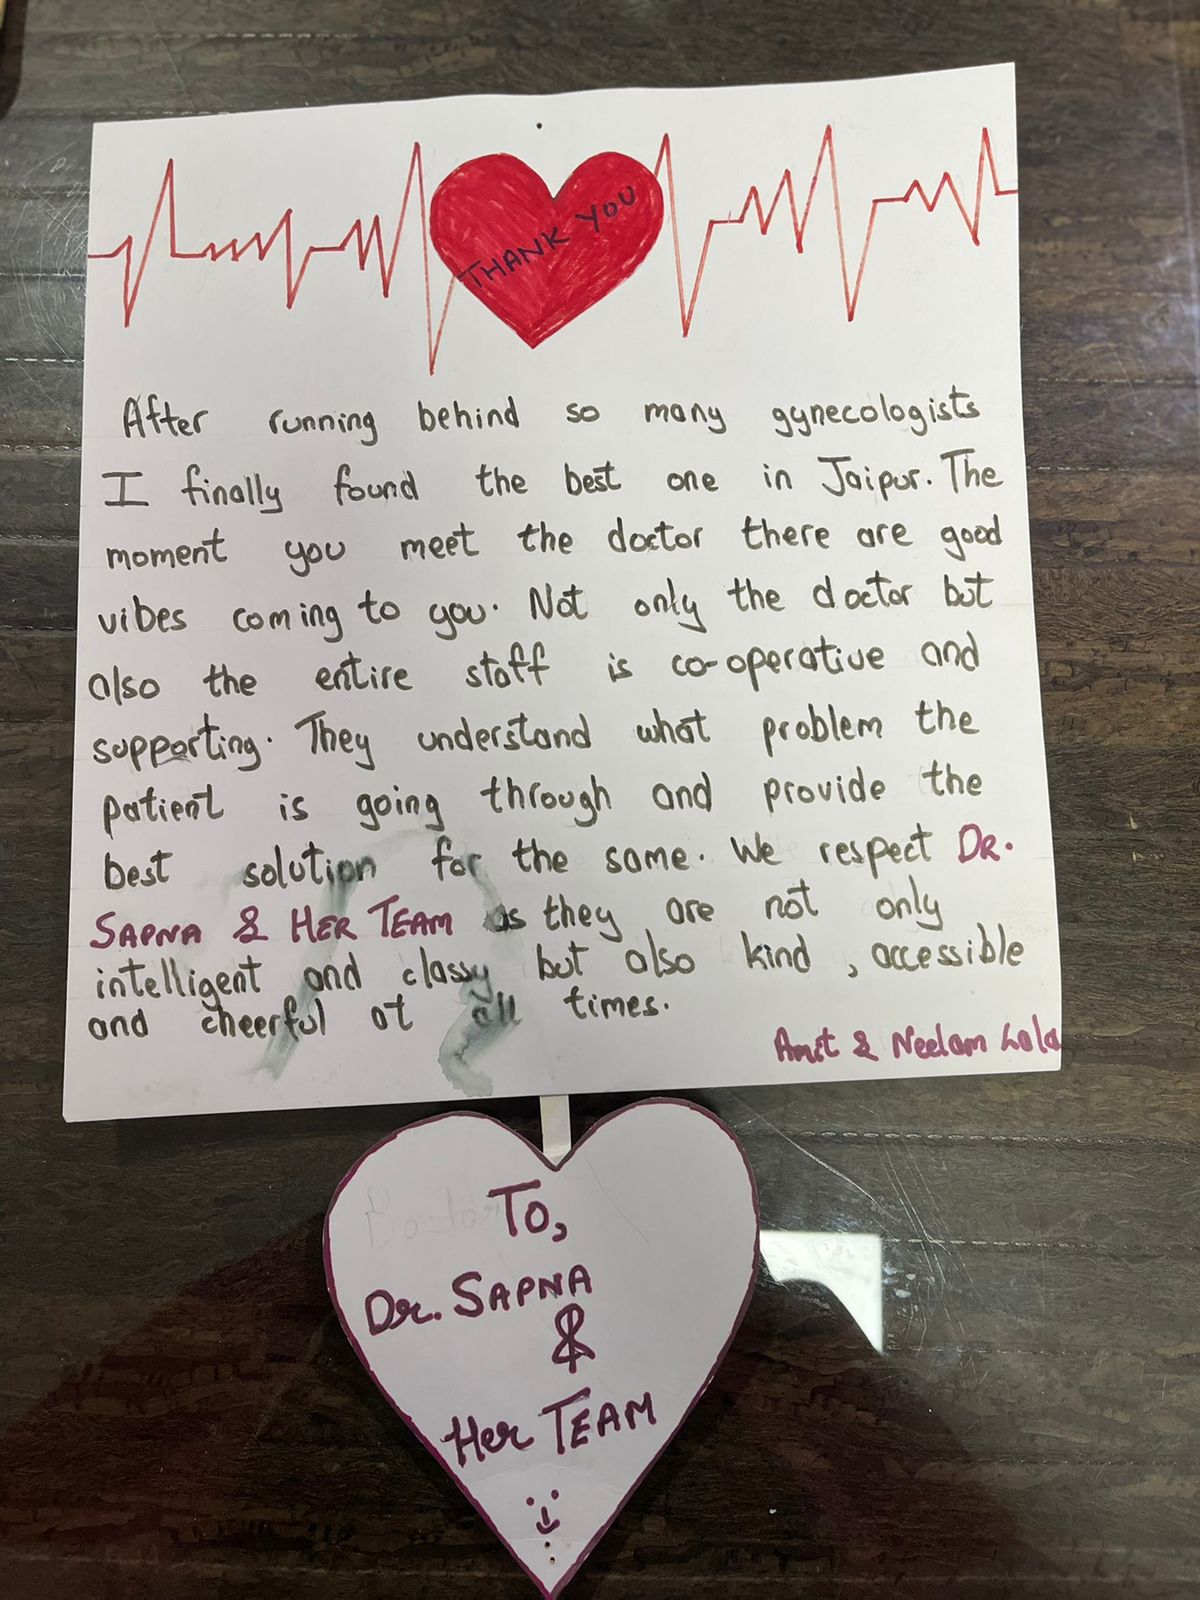 THANK YOU
After running behind so many gynecologists
I finally found the best one in Jaipur. The
moment you meet the doctor there are good
vibes coming to you. Not only the doctor but
also the entire staff is co-operative and
supporting. They understand what problem the
patient is going through and provide the
best solution for the same. We respect DR.
SAPNA & HER TEAM as they are not only
intelligent and classy but also kind , accessible
and cheerful at all times.
Amit & Neelam Lala
To,
Dr. SAPNA
&
Her TEAM